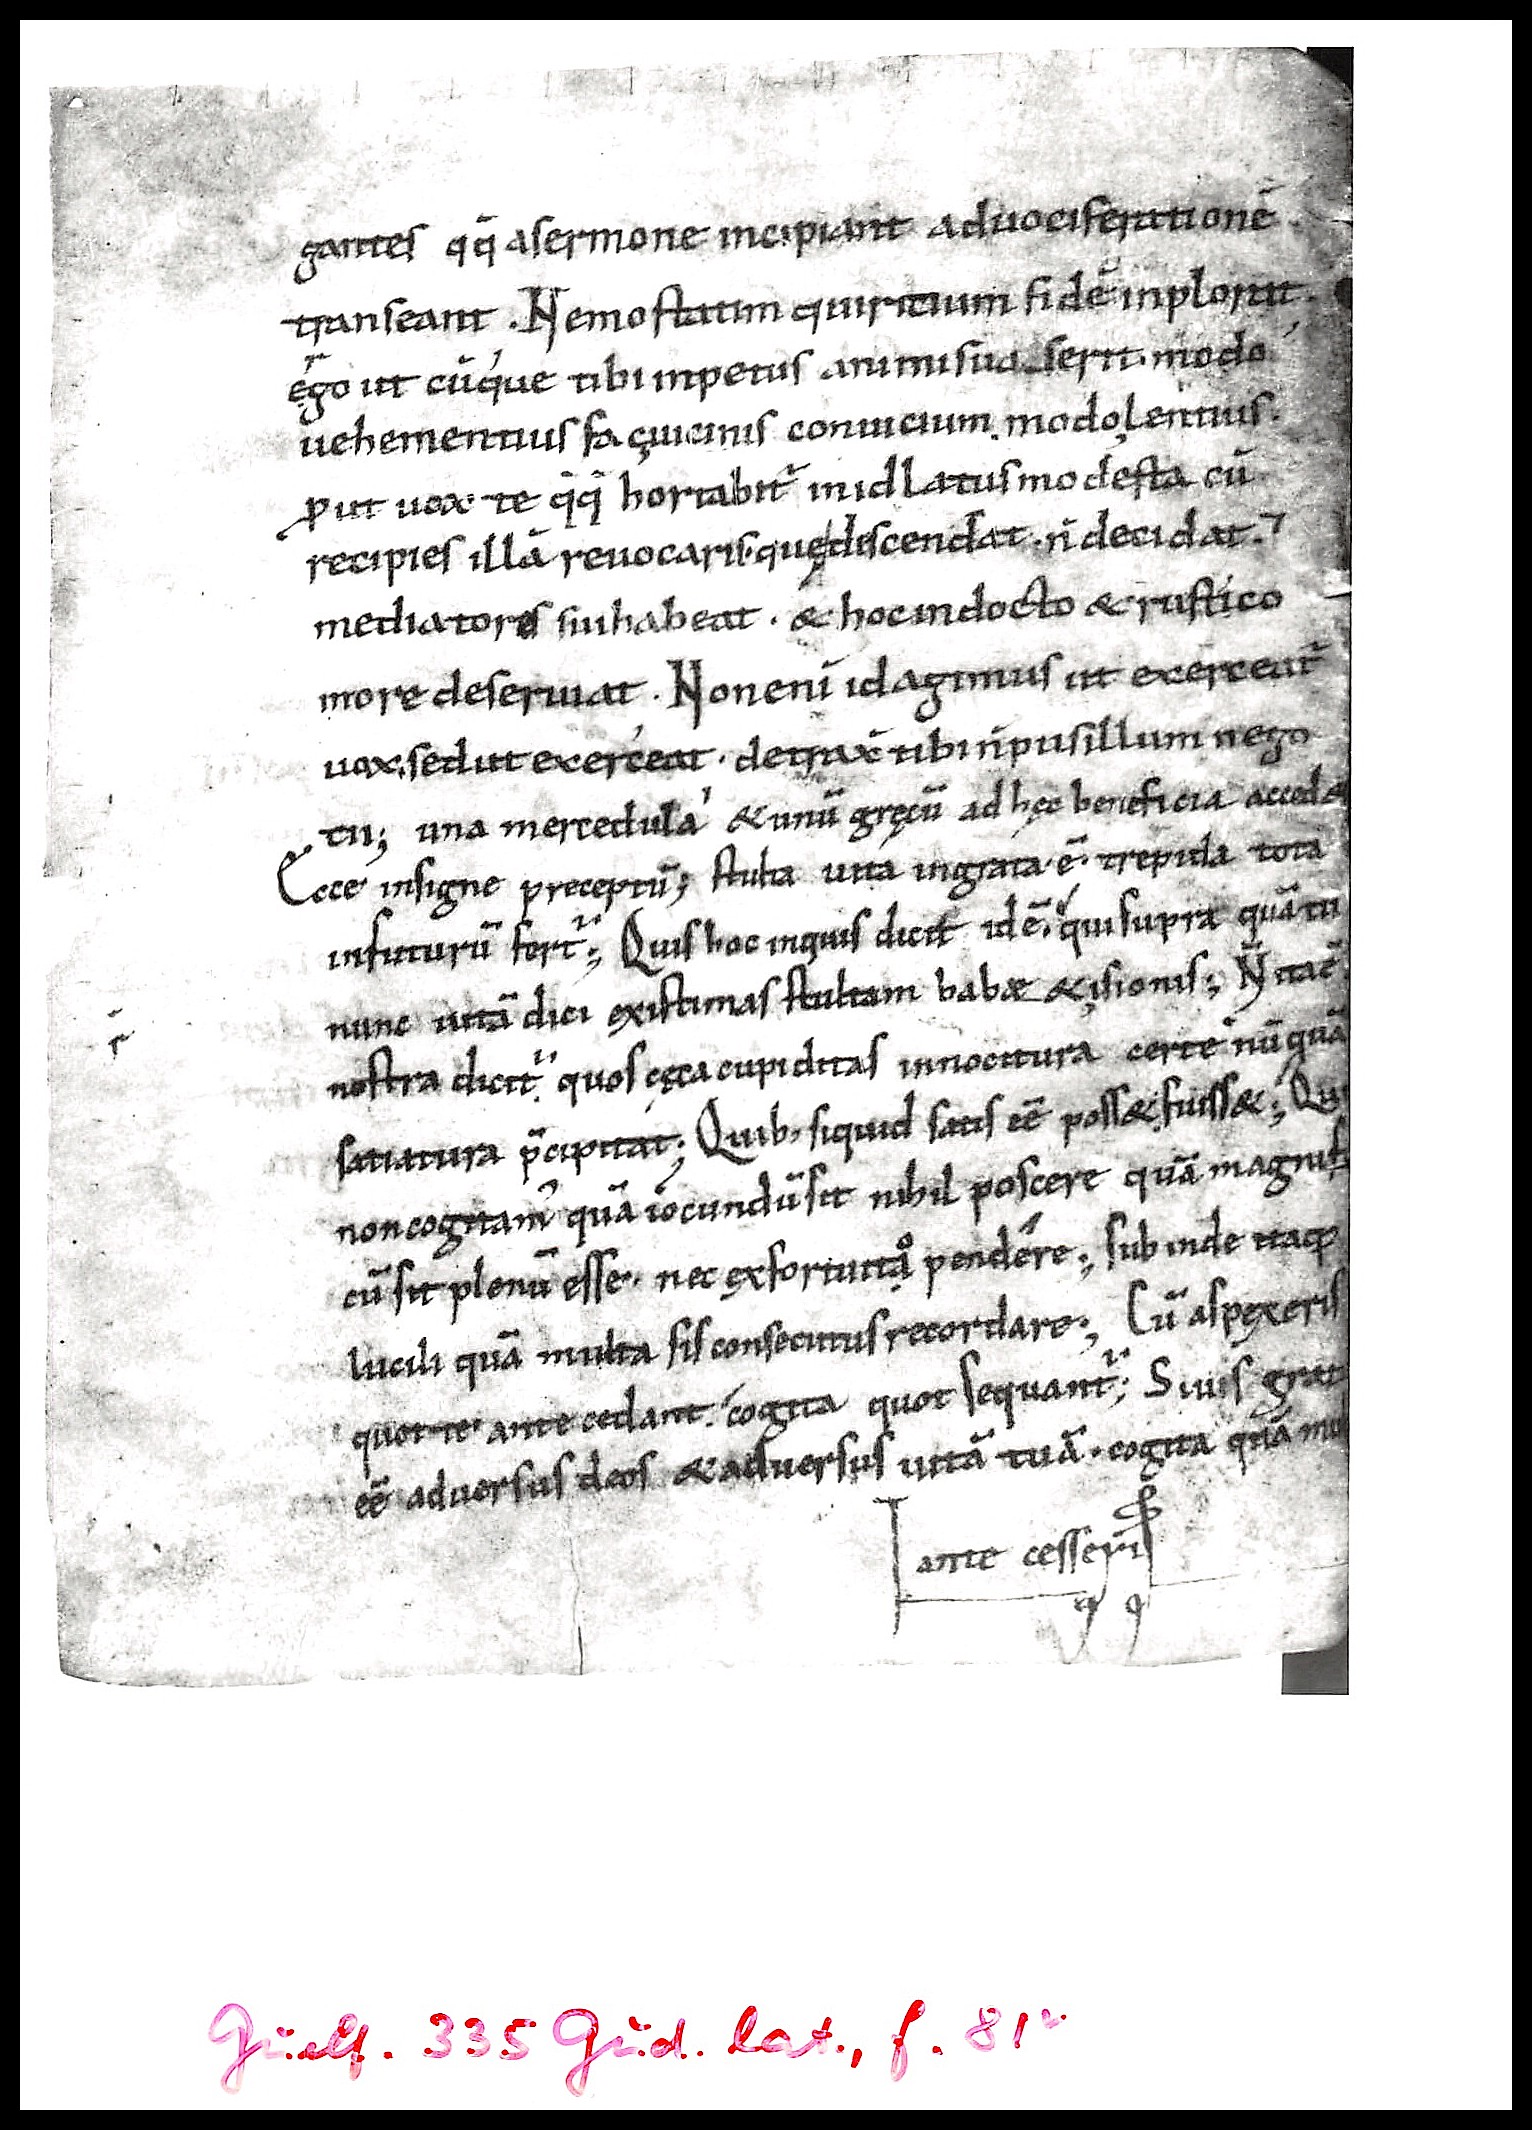 gantes qq̄ asermone incipiant aduociferationē.
transeant. Nemo statim quiritium fidē inplorat.
ēgo ut cūque tibi inpetus animi sua serit. modo
uehementius fa çiuicinis conuicium. modo lentius.
ꝓut uox te q̄q̄ hortabit᷑ inid latus modesta cū
recipies illā reuocaris. quę descendat. n̄ decidat. ⁊
mediatores sui habeat. & hoc indocto & rustico
more deseruiat. Non eni̅ id agimus ut exerceat᷑
uox. sed ut exerceat. detrax̄ tibi n̄ pusillum nego
tii; una mercedula & unū gręcū ad hęc beneficia acced&
Ecce insigne preceptū; stulta uita ingrata .ē. trepida tota
infuturū fert᷑; Quis hoc inquis dicit idē. qui supra quā tu
nunc uitā dici existimas stultam babæ & isionis; N̄ itaē.
nostra dicit᷑ quos cęca cupiditas innocitura certe nūquā
satiatura p̄cipitat; Quib; siquid satis eē poss& fuiss&; Qui
non cogitam᷒ quā iocundū sit nihil poscere quā magnifi
cū sit plenū esse. nec exfortuita pendere; sub inde itaq;
lucili quā multa sis consecutus recordare; Cū aspexeris
quot te ante cedant. cogita quot sequant᷑; Si uis grat
eē aduersus deos & aduersus uitā tuā. cogita quā mul
ante cesseris
Guelf. 335 Gud. lat., f. 81ᵛ